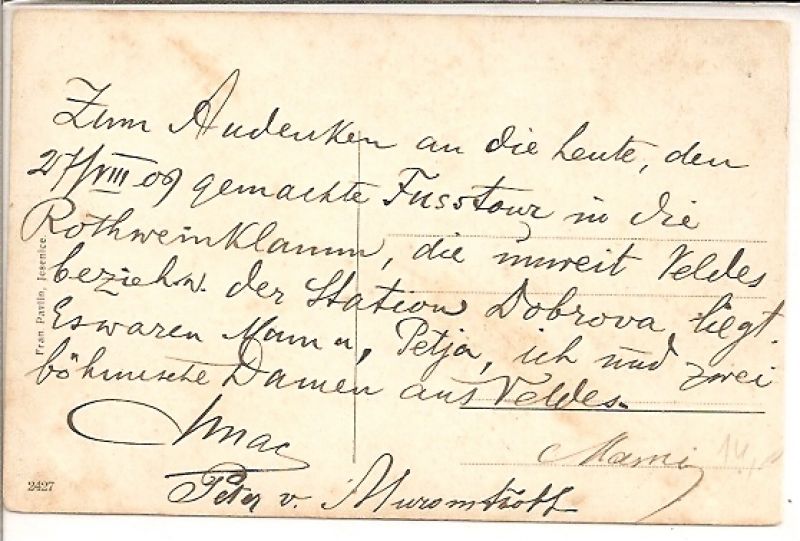 Zum Andenken an die heute, den
27/VIII 09 gemachte Fusstour in die
Rothweinklamm, die unweit Veldes
beziehw. der Station Dobrova liegt.
Es waren Mama, Petja, ich und zwei
böhmische Damen aus Veldes.
Mami
Peter v.
Fran Pavlin, Jesenice
2427